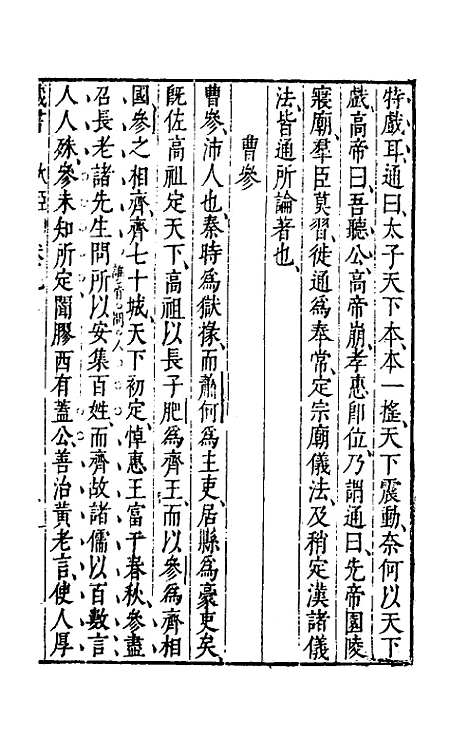 特戲耳通曰太子天下本本一搖天下震動奈何以天下
戲高帝曰吾聽公高帝崩孝惠卽位乃謂通曰先帝園陵
寢廟羣臣莫習徙通爲奉常定宗廟儀法及稍定漢諸儀
法皆通所論著也
曹參
曹參沛人也秦時爲獄掾而蕭何爲主吏居縣爲豪吏矣
旣佐高祖定天下高祖以長子肥爲齊王而以參爲齊相
國參之相齊齊七十城天下初定悼惠王富于春秋參盡
誰肯問人
召長老諸先生問所以安集百姓而齊故諸儒以百數言
人人殊參未知所定聞膠西有蓋公善治黃老言使人厚
藏書